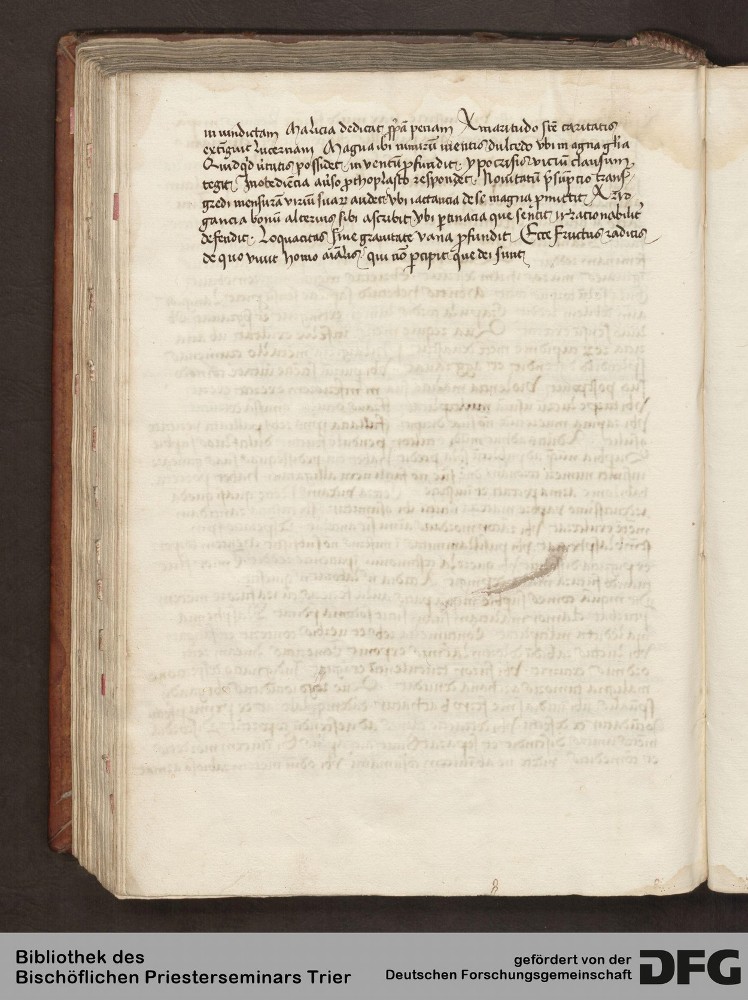 in vindictam Malicia dedicat sp̄ā penam Amaritudo stē caritatis
extīguit lucernam Magna ibi nimirū mentis dulcedo vbi magna
Quidqd ūtutis possidet in ventū p̄fundit ypocrisis viciū clausum
tegit Inobediēcia prothoplasto respondet Nouitatū p̄sūpcio trans
gredi mensurā viriū suar audet vbi iactancia de se magna p̄mittit Arro
gancia bonū alterius sibi ascribit vbi ptinacia que sentit irracionabilit̄
defendit Loquacitas sine grauitate vana p̄fundit Ecce Fructus radicis
de quo viuit homo aīalis qui nō p̄cipit que dei sunt
Bibliothek des
Bischöflichen Priesterseminars Trier
gefördert von der
Deutschen Forschungsgemeinschaft
DFG